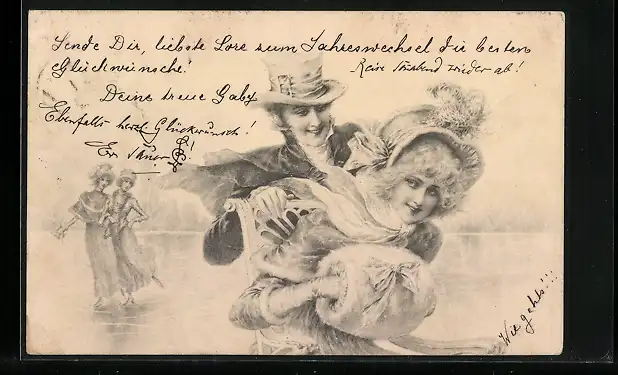 Sende Dir, liebste Lore zum Jahreswechsel die besten
Glückwünsche!
Reise Abend wieder ab!
Deine treue Gaby
Ebenfalls herzl. Glückwunsch!
Wie gehts!!!